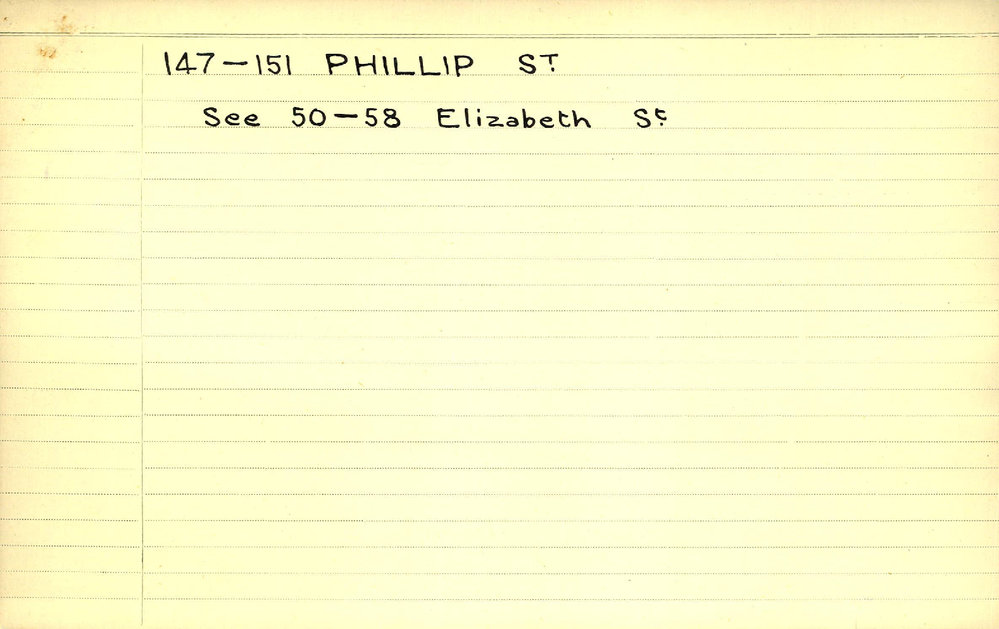 147-151 PHILLIP ST.
See 50-58 Elizabeth St.